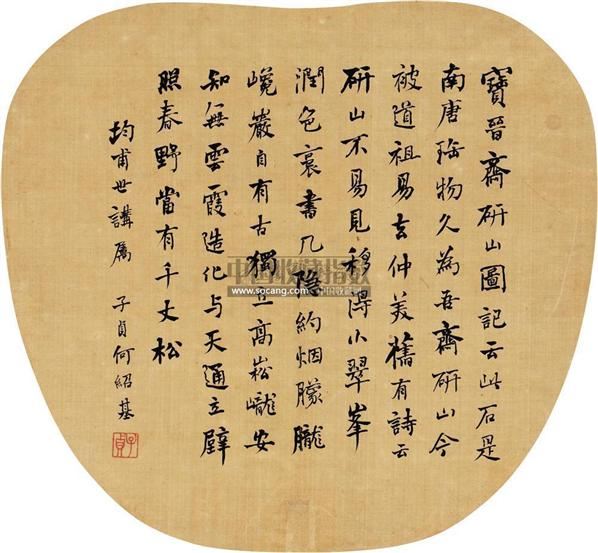 寶晉齋研山圖記云此石是
南唐瑤物久為吾齋研山今
被道祖易去仲美舊有詩云
研山不易見移得小翠峯
潤色裛書几隱約烟朦朧
巉巖自有古獨立高崧巄安
知無雲霞造化与天通立壁
照春野當有千丈松
均甫世講屬 子貞何紹基
子貞
中国收藏指数
www.socang.com